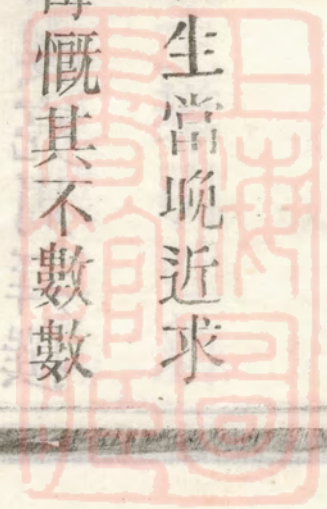 生當晚近求
慨其不數數